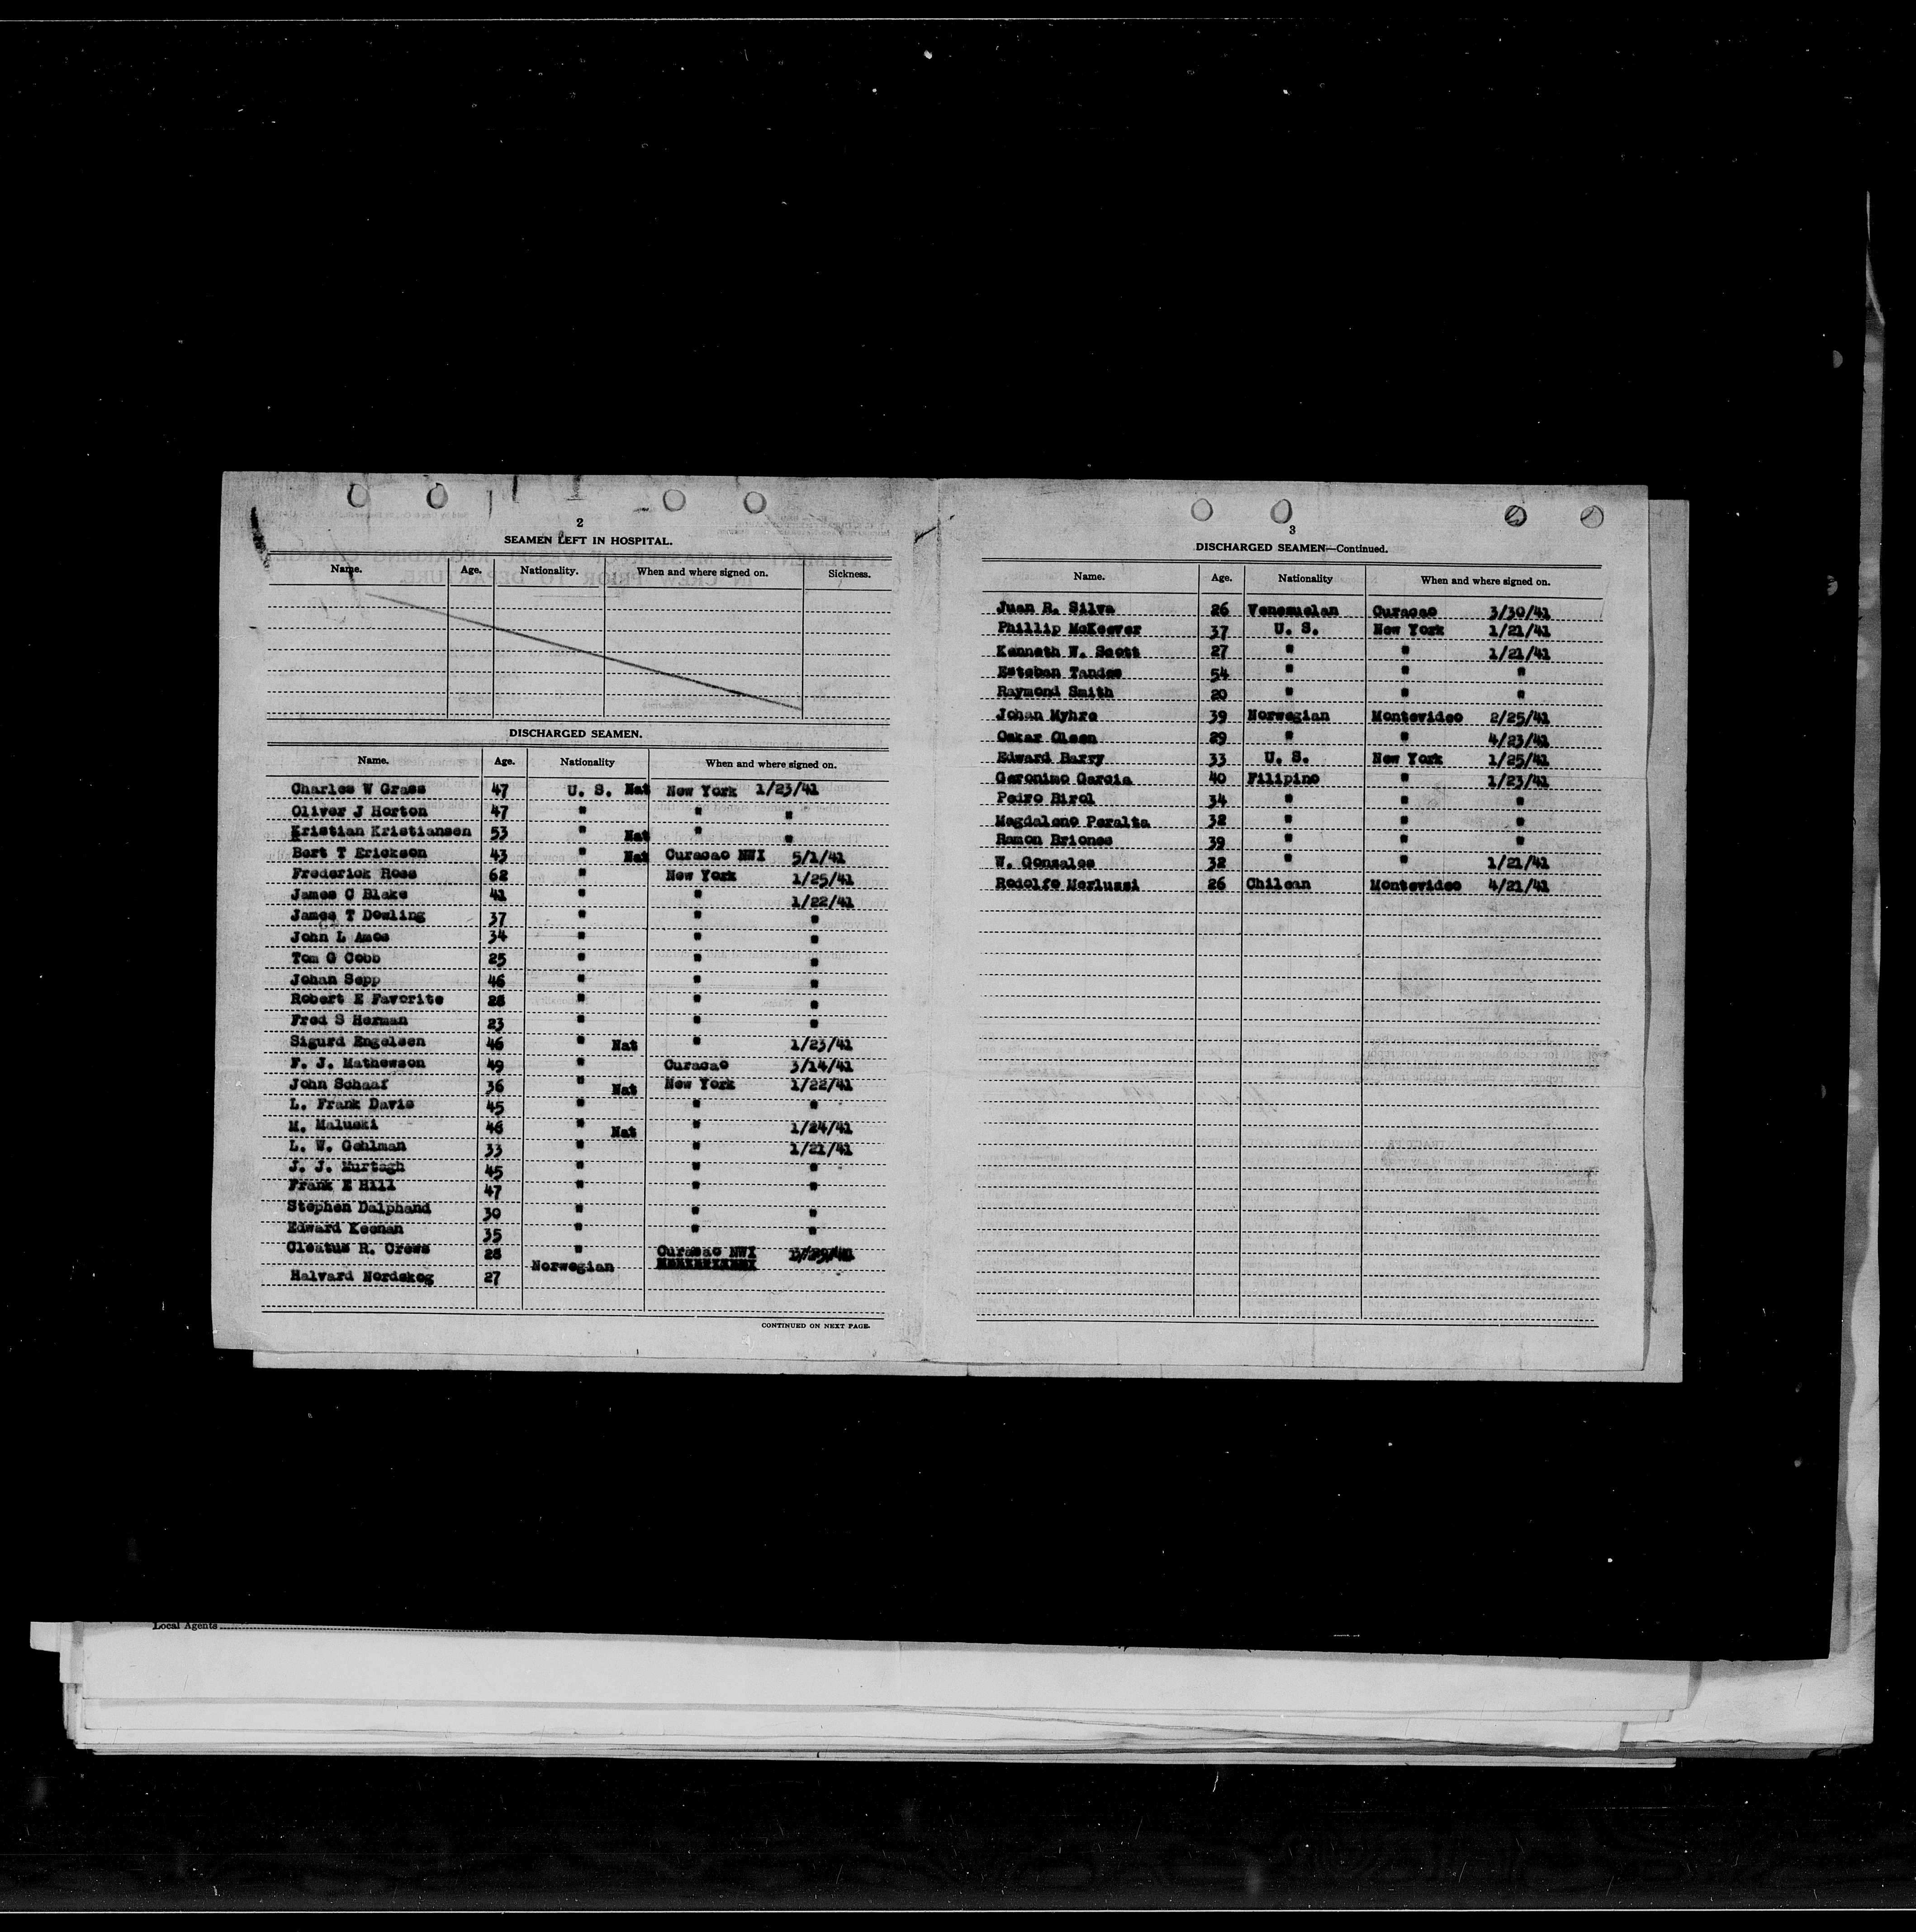 2
SEAMEN LEFT IN HOSPITAL.
Name. Age. Nationality. When and where signed on. Sickness.
DISCHARGED SEAMEN.
Name. Age. Nationality When and where signed on.
Charles W Grass 47 U. S. Nat New York 1/23/41
Oliver J Horton 47 " " "
Kristian Kristiansen 53 " Nat " "
Bert T Erickson 43 " Nat Curacao NWI 5/1/41
Frederick Ross 62 " New York 1/25/41
James C Blake 41 " " 1/22/41
James T Dowling 37 " " "
John L Amos 34 " " "
Tom G Cobb 25 " " "
Johan Sepp 46 " " "
Robert E Favorite 28 " " "
Fred S Herman 23 " " "
Sigurd Engelsen 46 " Nat " 1/23/41
F. J. Mathewson 49 " Curacao 3/14/41
John Schaaf 36 " Nat New York 1/22/41
L. Frank Davis 45 " " "
M. Maluski 46 " Nat " 1/24/41
L. W. Gehlman 33 " " 1/21/41
J. J. Murtagh 45 " " "
Frank E Hill 47 " " "
Stephen Dalphand 30 " " "
Edward Keenan 35 " " "
Cleatus R. Crews 28 " Curacao NWI
Halvard Nordskog 27 Norwegian
CONTINUED ON NEXT PAGE.
3
DISCHARGED SEAMEN—Continued.
Name. Age. Nationality When and where signed on.
Juan R. Silva 26 Venezuelan Curacao 3/30/41
Phillip McKeever 37 U. S. New York 1/21/41
Kenneth W. Scott 27 " " 1/21/41
Esteban Tandes 54 " " "
Raymond Smith 20 " " "
Johan Myhre 39 Norwegian Montevideo 2/25/41
Oskar Olsen 29 " " 4/23/41
Edward Barry 33 U. S. New York 1/25/41
Geronimo Garcia 40 Filipino " 1/23/41
Pedro Birol 34 " " "
Magdaleno Peralta 32 " " "
Ramon Briones 39 " " "
W. Gonzales 32 " " 1/21/41
Rodolfo Merlussi 26 Chilean Montevideo 4/21/41
Local Agents